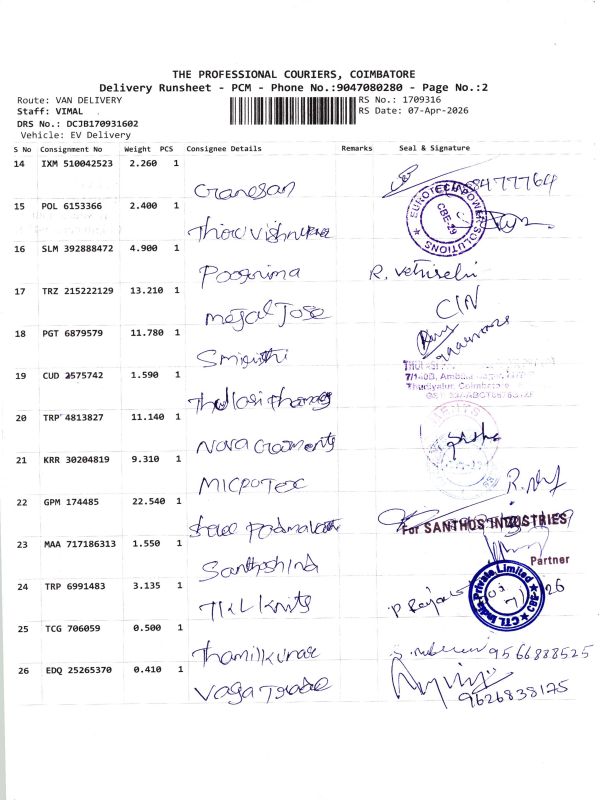 THE PROFESSIONAL COURIERS, COIMBATORE
Delivery Runsheet - PCM - Phone No.:9047080280 - Page No.:2
Route: VAN DELIVERY
RS No.: 1709316
Staff: VIMAL
RS Date: 07-Apr-2026
DRS No.: DCJB170931602
Vehicle: EV Delivery
S No Consignment No Weight PCS Consignee Details Remarks Seal & Signature
14 IXM 510042523 2.260 1
Ganesan
15 POL 6153366 2.400 1
EUROTECH POWER SOLUTIONS
CBE-29
Thiru
16 SLM 392888472 4.900 1
Poornima R. Vetriselvi
17 TRZ 215222129 13.210 1
CIN
Mejal Jose
18 PGT 6879579 11.780 1
19 CUD 2575742 1.590 1
Thudiyalur, Coimbatore
20 TRP 4813827 11.140 1
Nova Garments
21 KRR 30204819 9.310 1
MICROTEX
22 GPM 174485 22.540 1
Shree Padmavathi
For SANTHOS INDUSTRIES
23 MAA 717186313 1.550 1
Partner
24 TRP 6991483 3.135 1
CTL India Private Limited
CBE
TKL Knits
25 TCG 706059 0.500 1
Thamilkumar 9566888525
26 EDQ 25265370 0.410 1
Vaga Trade
9626838175